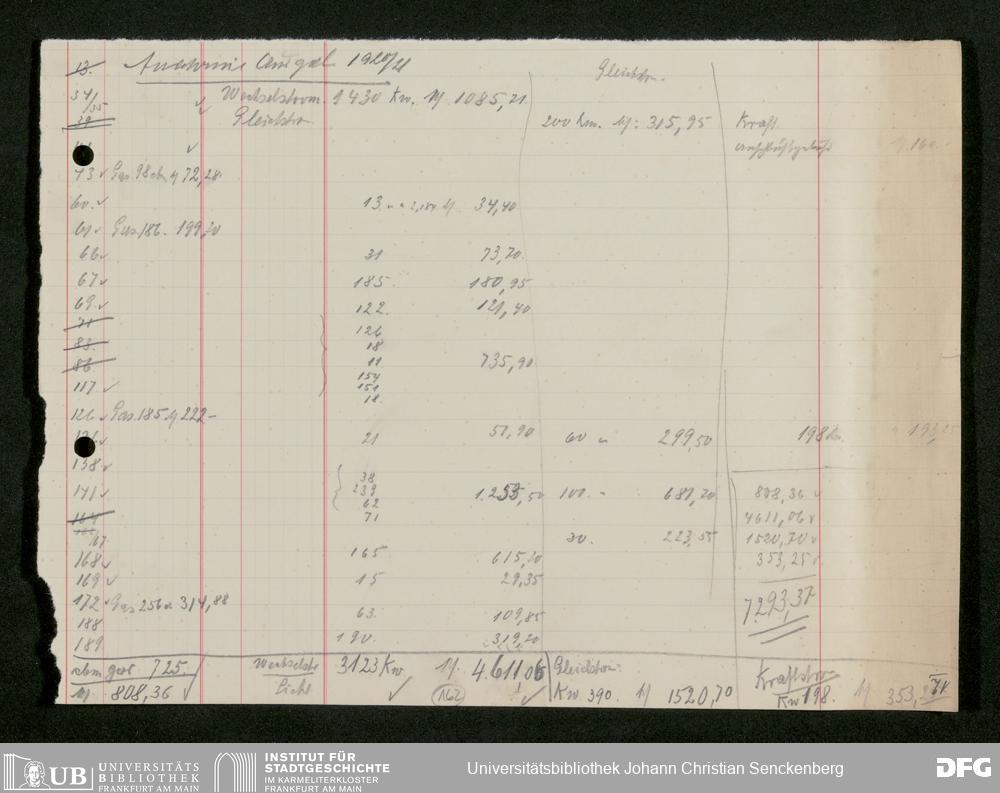 13. 1920/21 Gleichstr.
34/35 Wechselstrom. 1430 Kw. M 1085,21
39 Gleichstr. 200 M: 315,95 Kraft.
43 Gas 98 cbm M 72,28
60. 13. 34,40
61 Gas 186. 199,20
66 31 73,70
67 185. 180,95
69 122. 121,40
71 126
83. 18
86. 11 735,90
154
117 151
18
126 Gas 185 M 222-
21 51,90 60 " 299,50 198
138 38
141 239 1.255,50 100. " 681,70 808,36
62
164 71 4611,06
167 30. 223,55 1520,70
168 165 615,20 353,25
169 15 29,35
172 Gas 256 314,88 7293,37
188 63. 109,85
189 190. 319,20
cbm gas 725. Wechselstr 3123 Kw M. 4.611 06 Gleichstr: Kraftstro
M. 808,36 Licht 162 Kw. 390. M 1520,70 Kw 198. M 353,25
UB UNIVERSITÄTS BIBLIOTHEK FRANKFURT AM MAIN
INSTITUT FÜR STADTGESCHICHTE IM KARMELITERKLOSTER FRANKFURT AM MAIN
Universitätsbibliothek Johann Christian Senckenberg
DFG